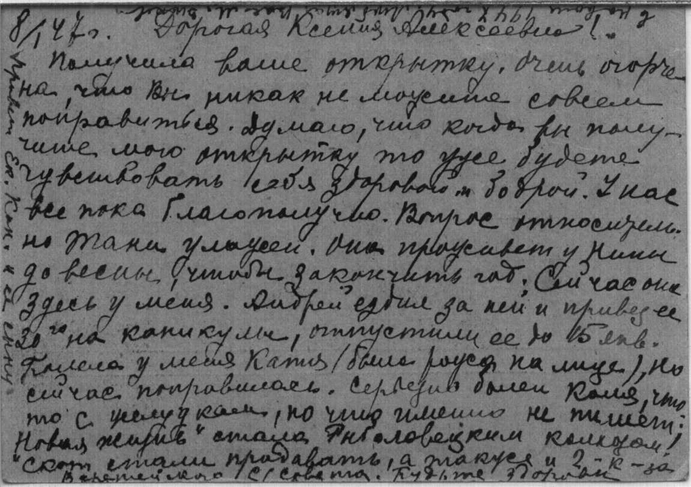 8/I 47 г. Дорогая Ксения Алексеевна!
Получила ваше открытку. Очень огорче
на, что Вы никак не можете совсем
поправиться. Думаю, что когда вы полу-
чите мою открытку то уже будете
чувствовать себя здоровой и бодрой. У нас
все пока благополучно. Вопрос относитель-
но Тани улажен. Она проживет у Нины
до весны, чтобы закончить год. Сейчас она
здесь у меня. Андрей ездил за ней и привез ее
30го на каникулы, отпустили ее до 15 янв.
Болела у меня Катя (была рожа на лице), но
сейчас поправилась. Серьезно болен Коля, что
то с желудком, но что именно не пишет.
"Новая жизнь" стала Рыболовецким колхозом!
Скот стали продавать, а также и
с/совета. Будьте здоровы
Привет Ек. Кон. и ее сыну.